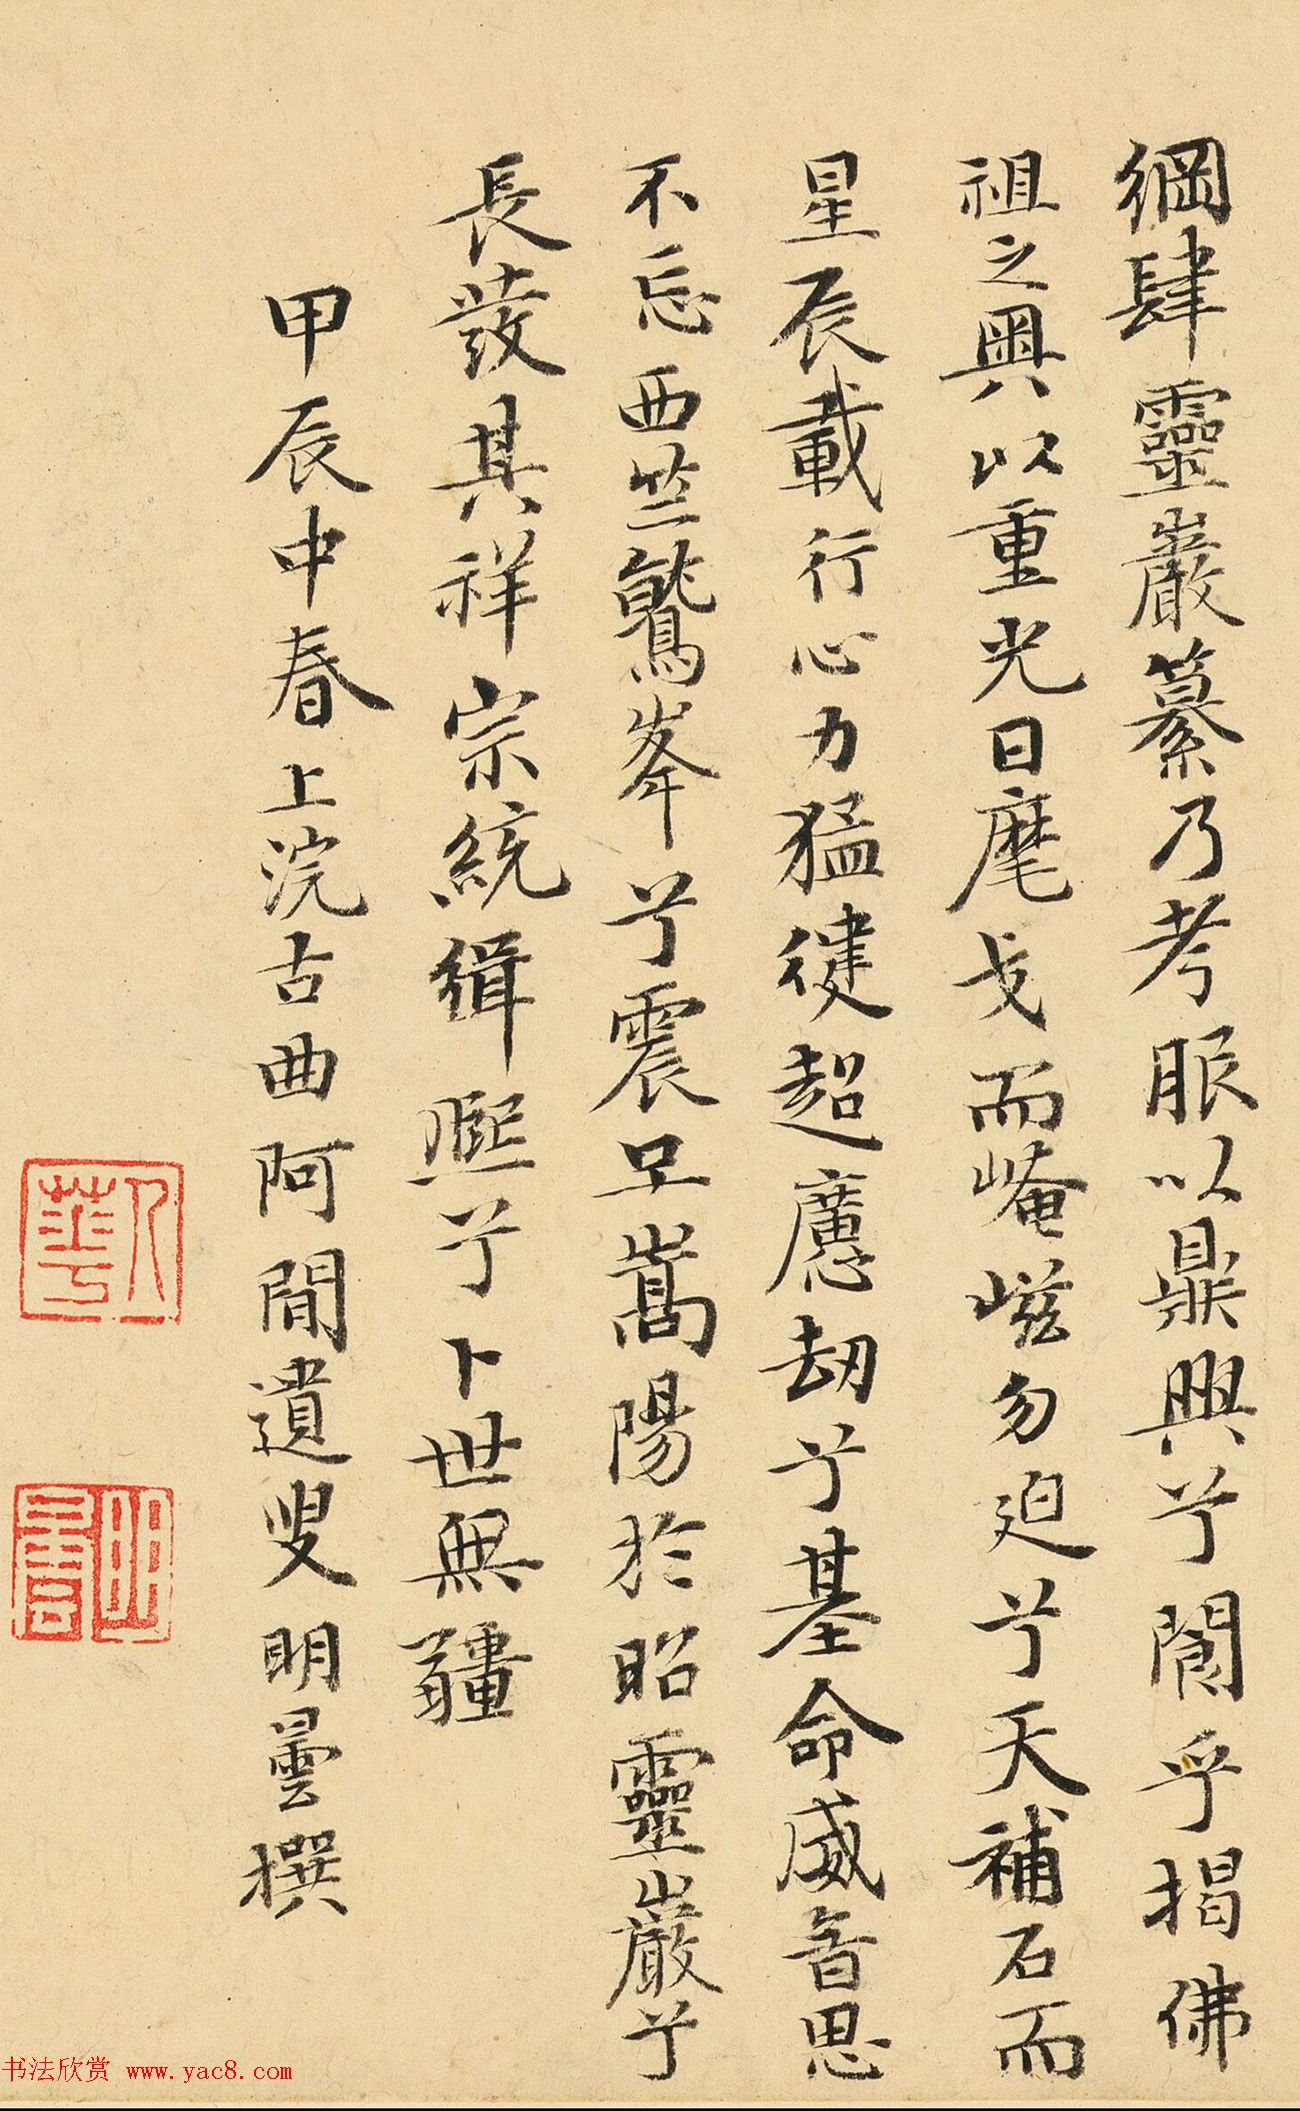 綱肆靈巖纂乃考服以鼎興兮闇乎揭佛
祖之奧以重光日麾戈而崦嵫勿迫兮天補石而
星辰載行心力猛健超塵劫兮基命威音思
不忘西竺鷲峯兮震旦嵩陽於昭靈巖兮
長發其祥宗統緝熙兮卜世無疆
甲辰中春上浣古曲阿閒遺叟明曇撰
书法欣赏 www.yac8.com